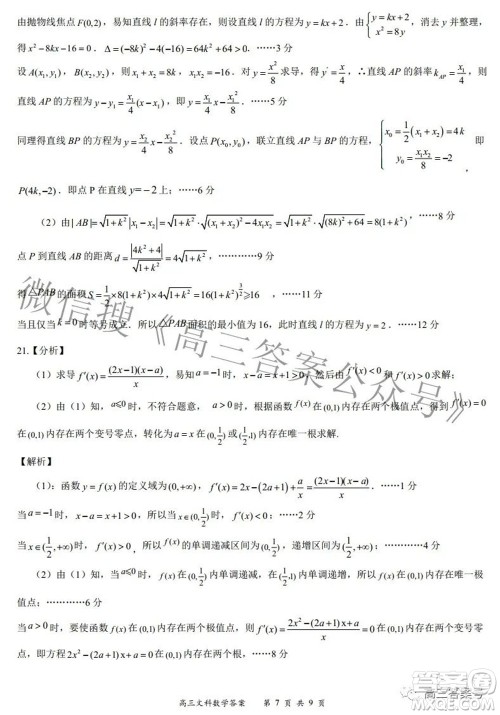 由抛物线焦点 F(0,2)，易知直线 l 的斜率存在，则设直线 l 的方程为 y=kx+2．由 {y=kx+2, x²=8y，消去 y 并整理，
得 x²−8kx−16=0．Δ=(−8k)²−4(−16)=64k²+64>0．……3分
设 A(x₁,y₁)，B(x₂,y₂)，则 x₁+x₂=8k，x₁x₂=−16．对 y=x²/8 求导，得 y'=x/4，∴直线 AP 的斜率 k_AP=x₁/4，则
直线 AP 的方程为 y−y₁=x₁/4(x−x₁)，即 y=x₁/4 x−x₁²/8．……5分
同理得直线 BP 的方程为 y=x₂/4 x−x₂²/8．设点 P(x₀,y₀)，联立直线 AP 与 BP 的方程，{x₀=1/2(x₁+x₂)=4k, y₀=x₁x₂/8=−2，即
P(4k,−2)．即点 P 在直线 y=−2 上；……6分
（2）由 |AB|=√(1+k²)|x₁−x₂|=√(1+k²)·√((x₁+x₂)²−4x₁x₂)=√(1+k²)·√((8k)²+64)=8(1+k²)，……8分
点 P 到直线 AB 的距离 d=|4k²+4|/√(1+k²)=4√(1+k²)，…………9分
得△PAB 的面积 S=1/2×8(1+k²)×4√(1+k²)=16(1+k²)^(3/2)≥16 ……11分，
当且仅当 k=0 时等号成立．所以△PAB 面积的最小值为 16，此时直线 l 的方程为 y=2．……12分
21.【分析】
（1）求导 f'(x)=(2x−1)(x−a)/x，易知 a=−1 时，x−a=x+1>0，然后由 f'(x)<0 和 f'(x)>0 求解；
（2）由（1）知，a≤0 时，不符合题意，a>0 时，根据函数 f(x) 在 (0,1) 内存在两个极值点，得到 f'(x)=0
在 (0,1) 内存在两个变号零点，转化为 a=x 在 (0,1/2) 或 (1/2,1) 内存在唯一根求解．
【解析】
（1）：函数 y=f(x) 的定义域为 (0,+∞)，f'(x)=2x−(2a+1)+a/x=(2x−1)(x−a)/x．……1分
当 a=−1 时，x−a=x+1>0，所以当 x∈(0,1/2) 时，f'(x)<0；……2分
当 x∈(1/2,+∞) 时，f'(x)>0，所以 f(x) 的单调递减区间为 (0,1/2)，递增区间为 (1/2,+∞)；……4分
（2）由（1）知，当 a≤0 时，f(x) 在 (0,1/2) 内单调递减，在 (1/2,1) 内单调递增，所以 f(x) 在 (0,1) 内存在唯一极
值点；……6分
当 a>0 时，要使函数 f(x) 在 (0,1) 内存在两个极值点，则 f'(x)=(2x²−(2a+1)x+a)/x 在 (0,1) 内存在两个变号零
点，即方程 2x²−(2a+1)x+a=0 在 (0,1) 内存在两个不相等的实数根，
高三文科数学答案 第 7 页 共 9 页
微信搜《高三答案公众号》
高三答案号